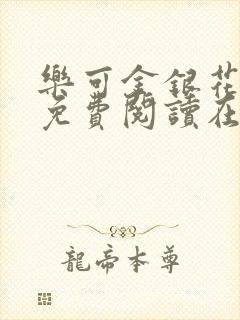 樂可金銀花
免費閱讀在
龍帝本尊